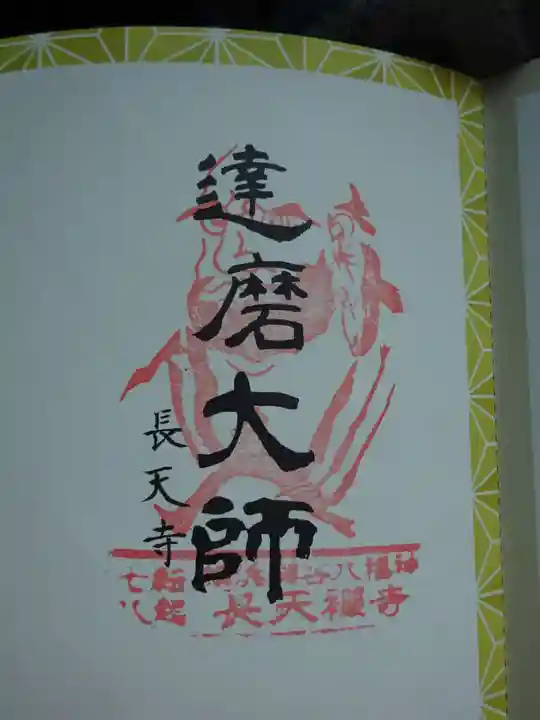 達磨大師
長天寺
七転
八起
八福神
長天禅寺